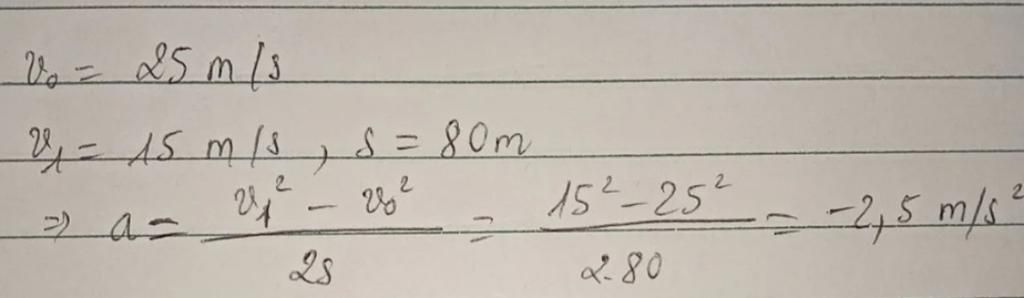 v₀ = 25 m/s
v₁ = 15 m/s, s = 80m
⇒ a = (v₁² - v₀²)/(2s) = (15² - 25²)/(2.80) = -2,5 m/s²